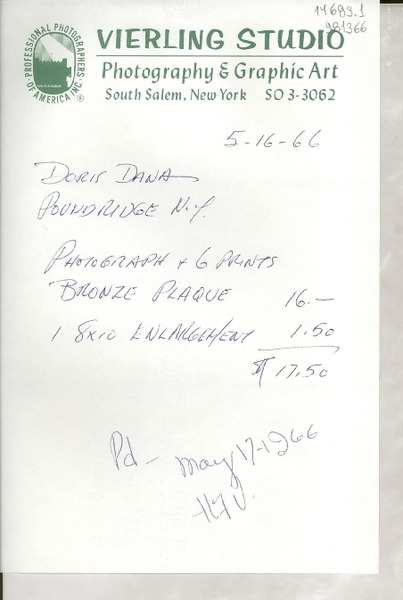 14689.1
981366
PROFESSIONAL PHOTOGRAPHERS OF AMERICA INC.
VIERLING STUDIO
Photography & Graphic Art
South Salem, New York SO 3-3062
5-16-66
DORIS DANA
POUNDRIDGE N.Y.
PHOTOGRAPH + 6 PRINTS
BRONZE PLAQUE 16.—
1 8X10 ENLARGEMENT 1.50
$17.50
Pd - May 17-1966